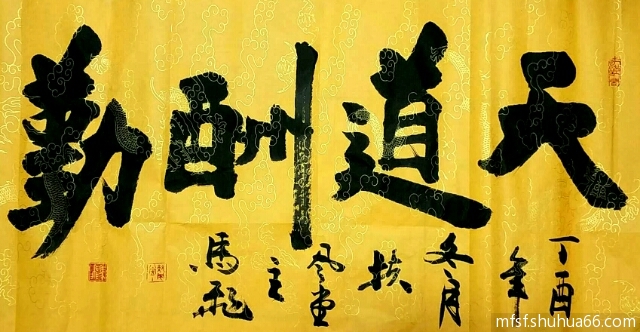 天道酬勤
丁酉年
冬月
扶
风堂
主
馬飛
mfsf.shuhua66.com